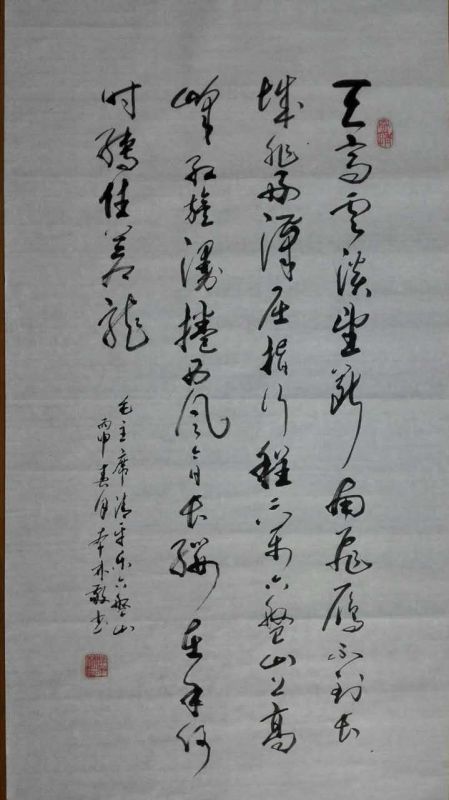 天高云淡望断南飞雁不到长
城非好漢屈指行程二万六盘山上高
峰红旗漫捲西风今日长缨在手何
时缚住苍龍
毛主席清平乐六盘山
丙申春月李
书